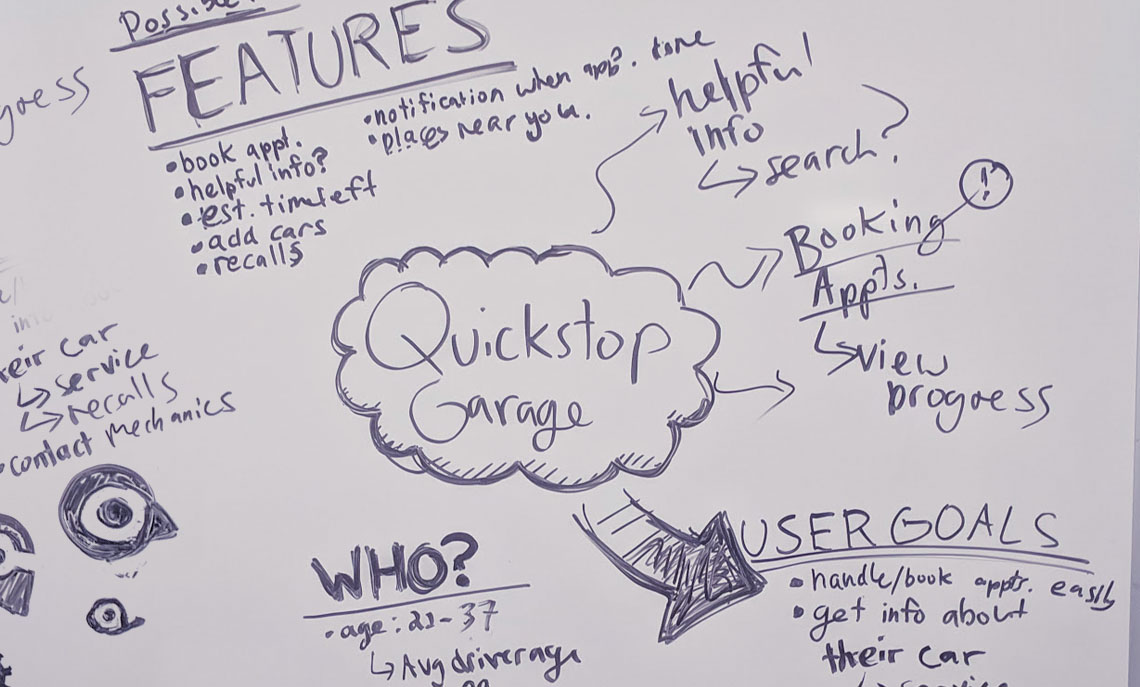 Possible
FEATURES
• book appt.
• helpful info?
• est. time left
• add cars
• recalls
• notification when app?. time
• places near you.
helpful
info
↳ search?
Booking
Appts.
!?
↳ view
progress
Quickstop
Garage
gress
their car
↳ service
↳ recalls
• contact mechanics
WHO?
• age: 21-37
↳ Avg driver age
USER GOALS
• handle/book appts. easily
• get info about
their car
↳ service